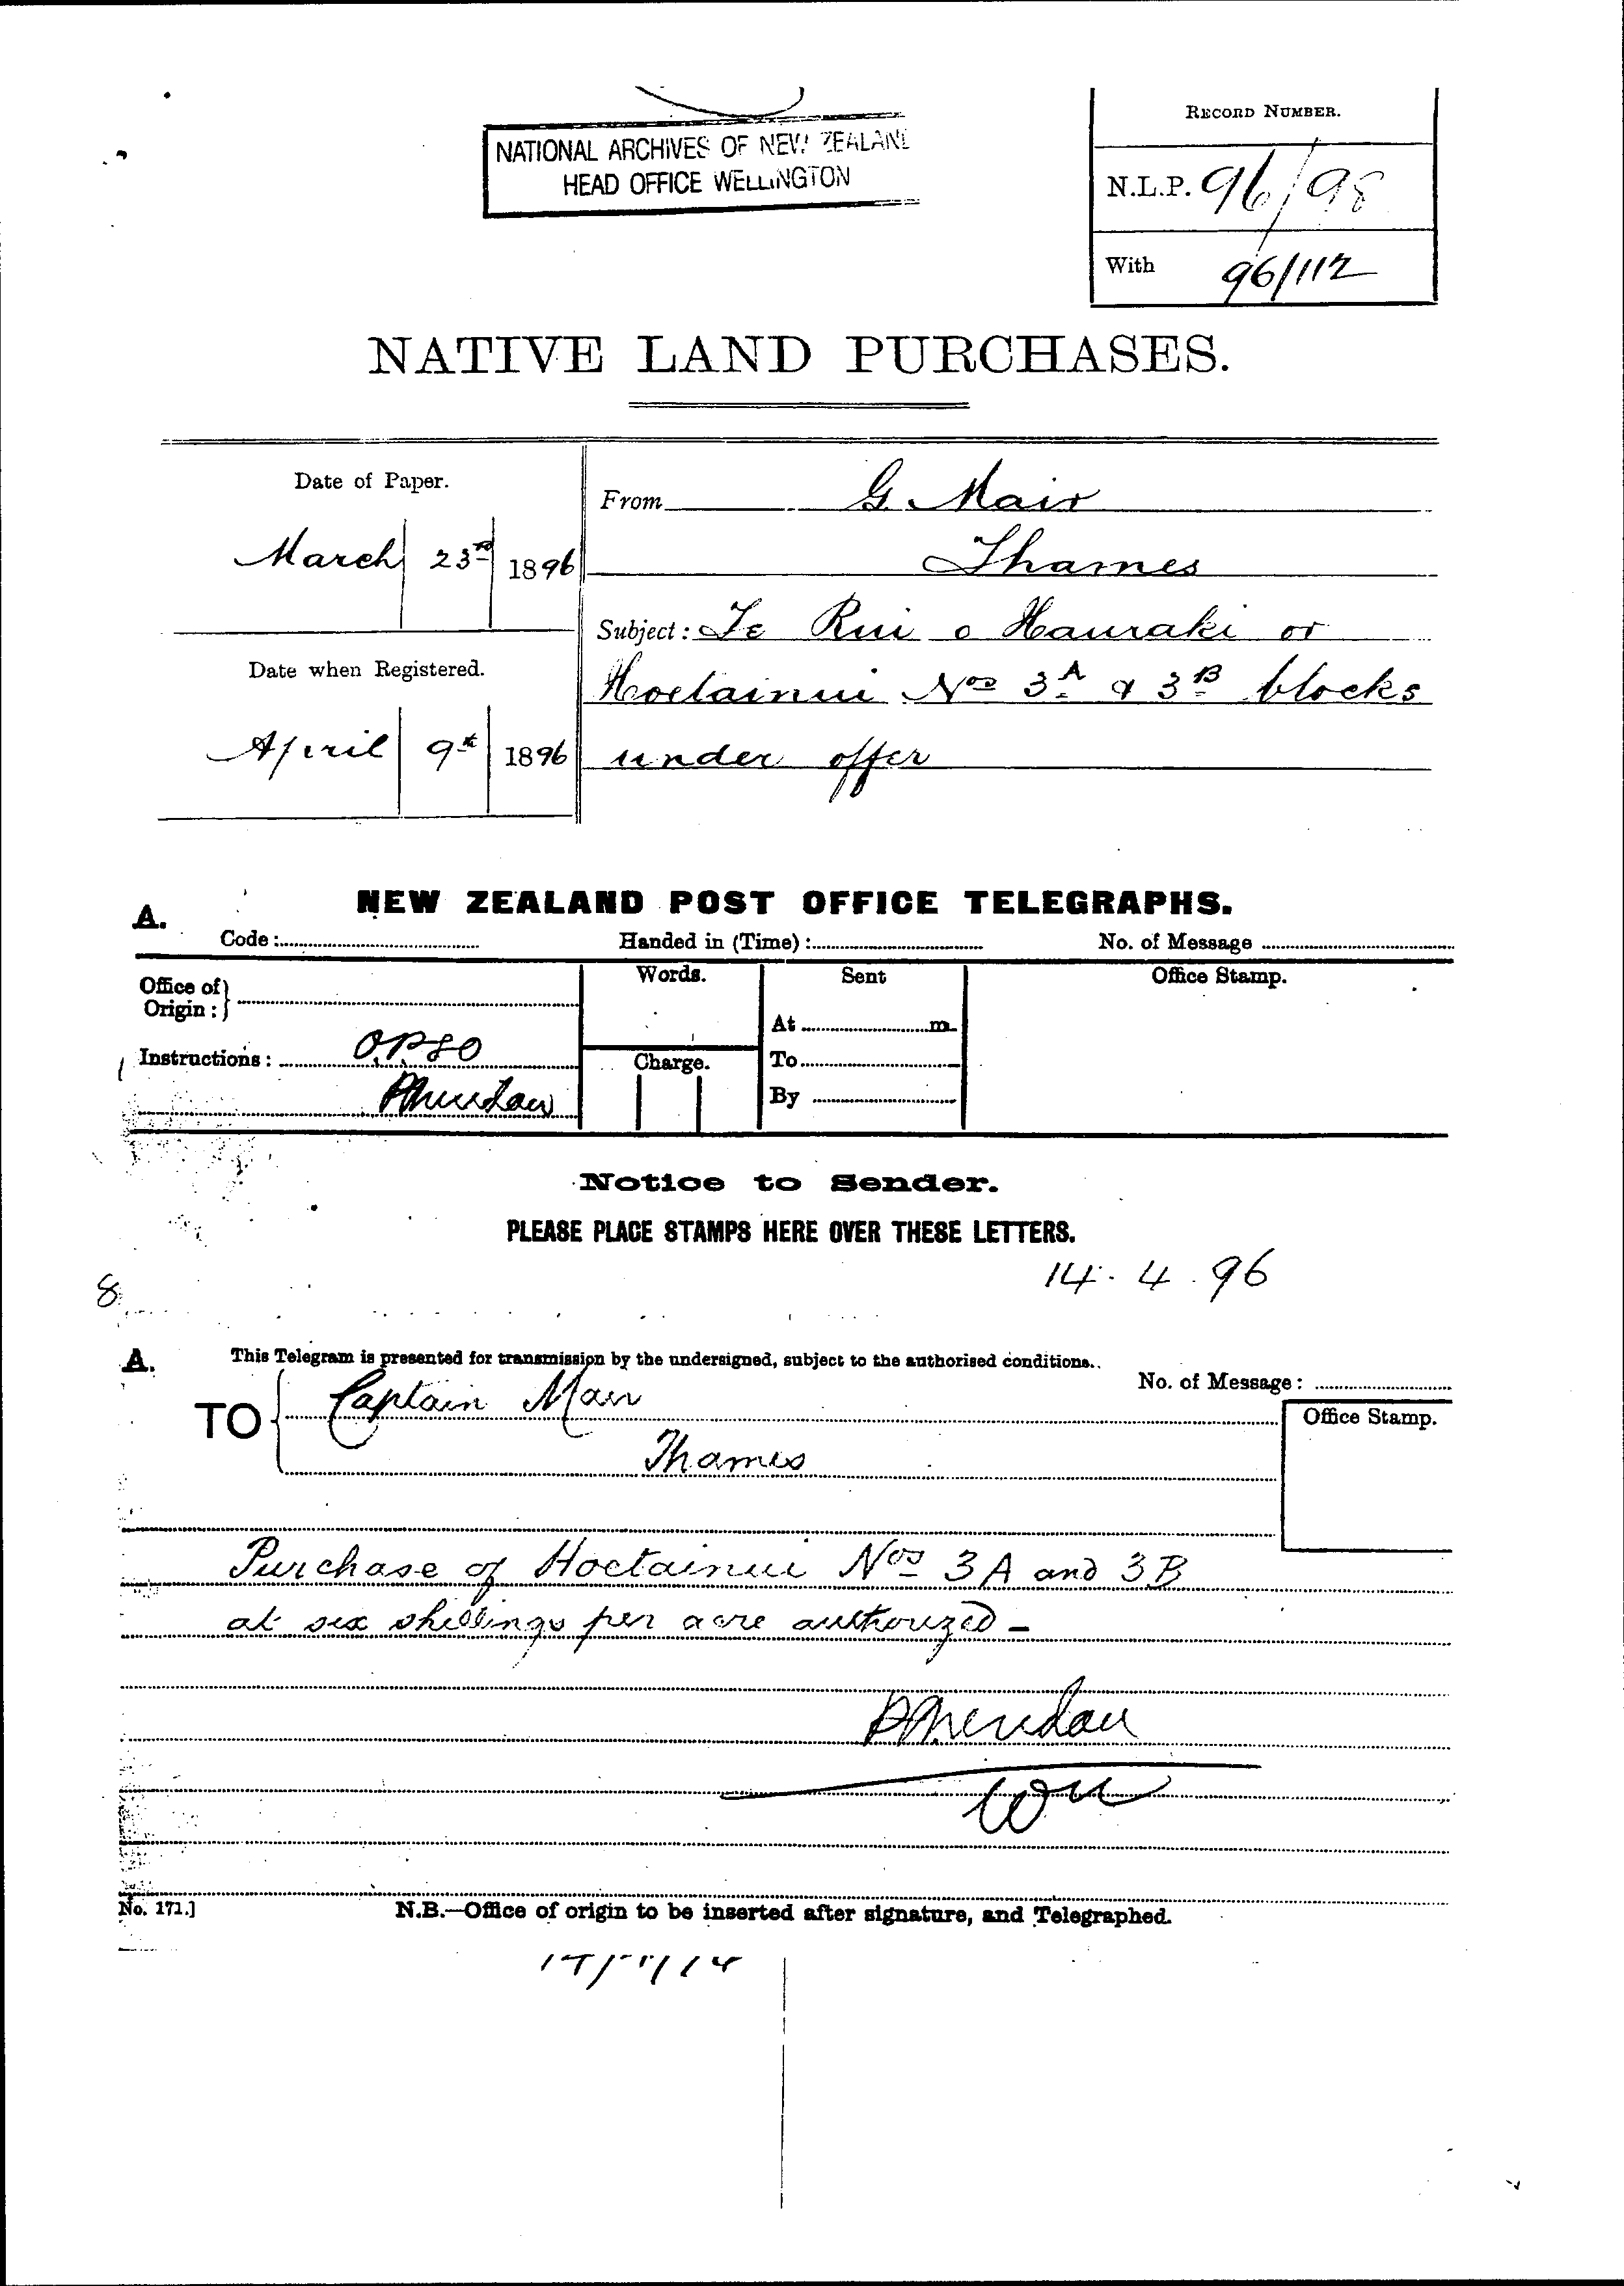 NATIONAL ARCHIVES OF NEW ZEALAND
HEAD OFFICE WELLINGTON
RECORD NUMBER.
N.L.P. 96/98
With 96/112
NATIVE LAND PURCHASES.
Date of Paper.
March 23rd 1896
Date when Registered.
April 9th 1896
From G. Mair
Thames
Subject: Te Rui o Hauraki or
Hoetainui Nos 3A & 3B blocks
under offer
NEW ZEALAND POST OFFICE TELEGRAPHS.
A.
Code: Handed in (Time): No. of Message
Office of Origin:
Words.
Sent
Office Stamp.
At m.
Instructions: OPSO
Charge.
To
PSheridan
By
Notice to Sender.
PLEASE PLACE STAMPS HERE OVER THESE LETTERS.
14.4.96
8
A. This Telegram is presented for transmission by the undersigned, subject to the authorised conditions.
No. of Message:
TO Captain Mair
Office Stamp.
Thames
Purchase of Hoetainui Nos 3A and 3B
at six shillings per acre authorized -
PSheridan
No. 171.]
N.B.—Office of origin to be inserted after signature, and Telegraphed.